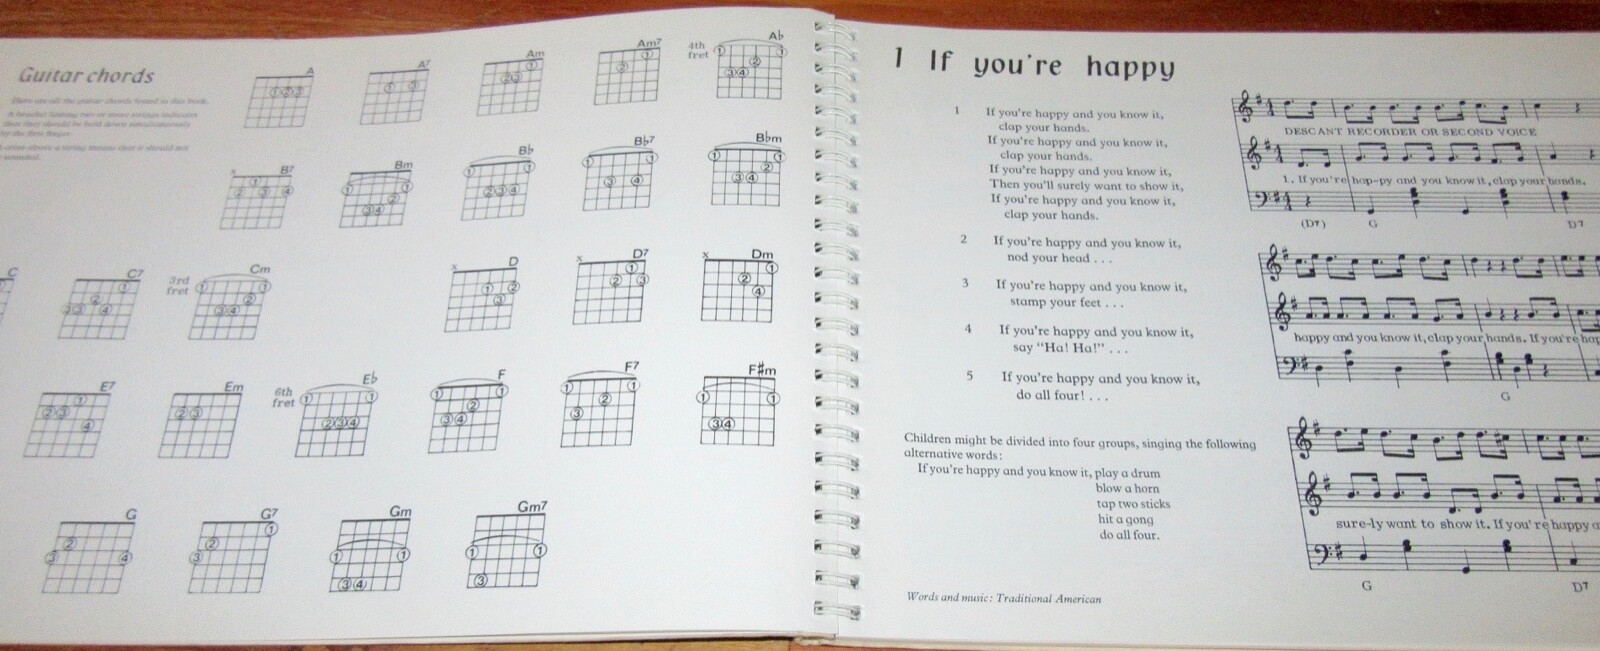 Guitar chords
Here are all the guitar chords found in this book.
A bracket linking two or more strings indicates
that they should be held down simultaneously
by the first finger.
A cross above a string means that it should not
be sounded.
A A7 Am Am7 4th fret Ab
x B7 Bm Bb Bb7 Bbm
C C7 3rd fret Cm x D x D7 x Dm
E7 Em 6th fret Eb F F7 F#m
G G7 Gm Gm7
1 If you're happy
1 If you're happy and you know it,
clap your hands.
If you're happy and you know it,
clap your hands.
If you're happy and you know it,
Then you'll surely want to show it,
If you're happy and you know it,
clap your hands.
2 If you're happy and you know it,
nod your head . . .
3 If you're happy and you know it,
stamp your feet . . .
4 If you're happy and you know it,
say "Ha! Ha!" . . .
5 If you're happy and you know it,
do all four! . . .
Children might be divided into four groups, singing the following
alternative words:
If you're happy and you know it, play a drum
blow a horn
tap two sticks
hit a gong
do all four.
Words and music: Traditional American
DESCANT RECORDER OR SECOND VOICE
1. If you're hap-py and you know it, clap your hands.
(D7) G D7
happy and you know it, clap your hands. If you're hap
G
sure-ly want to show it. If you're happy a
G D7